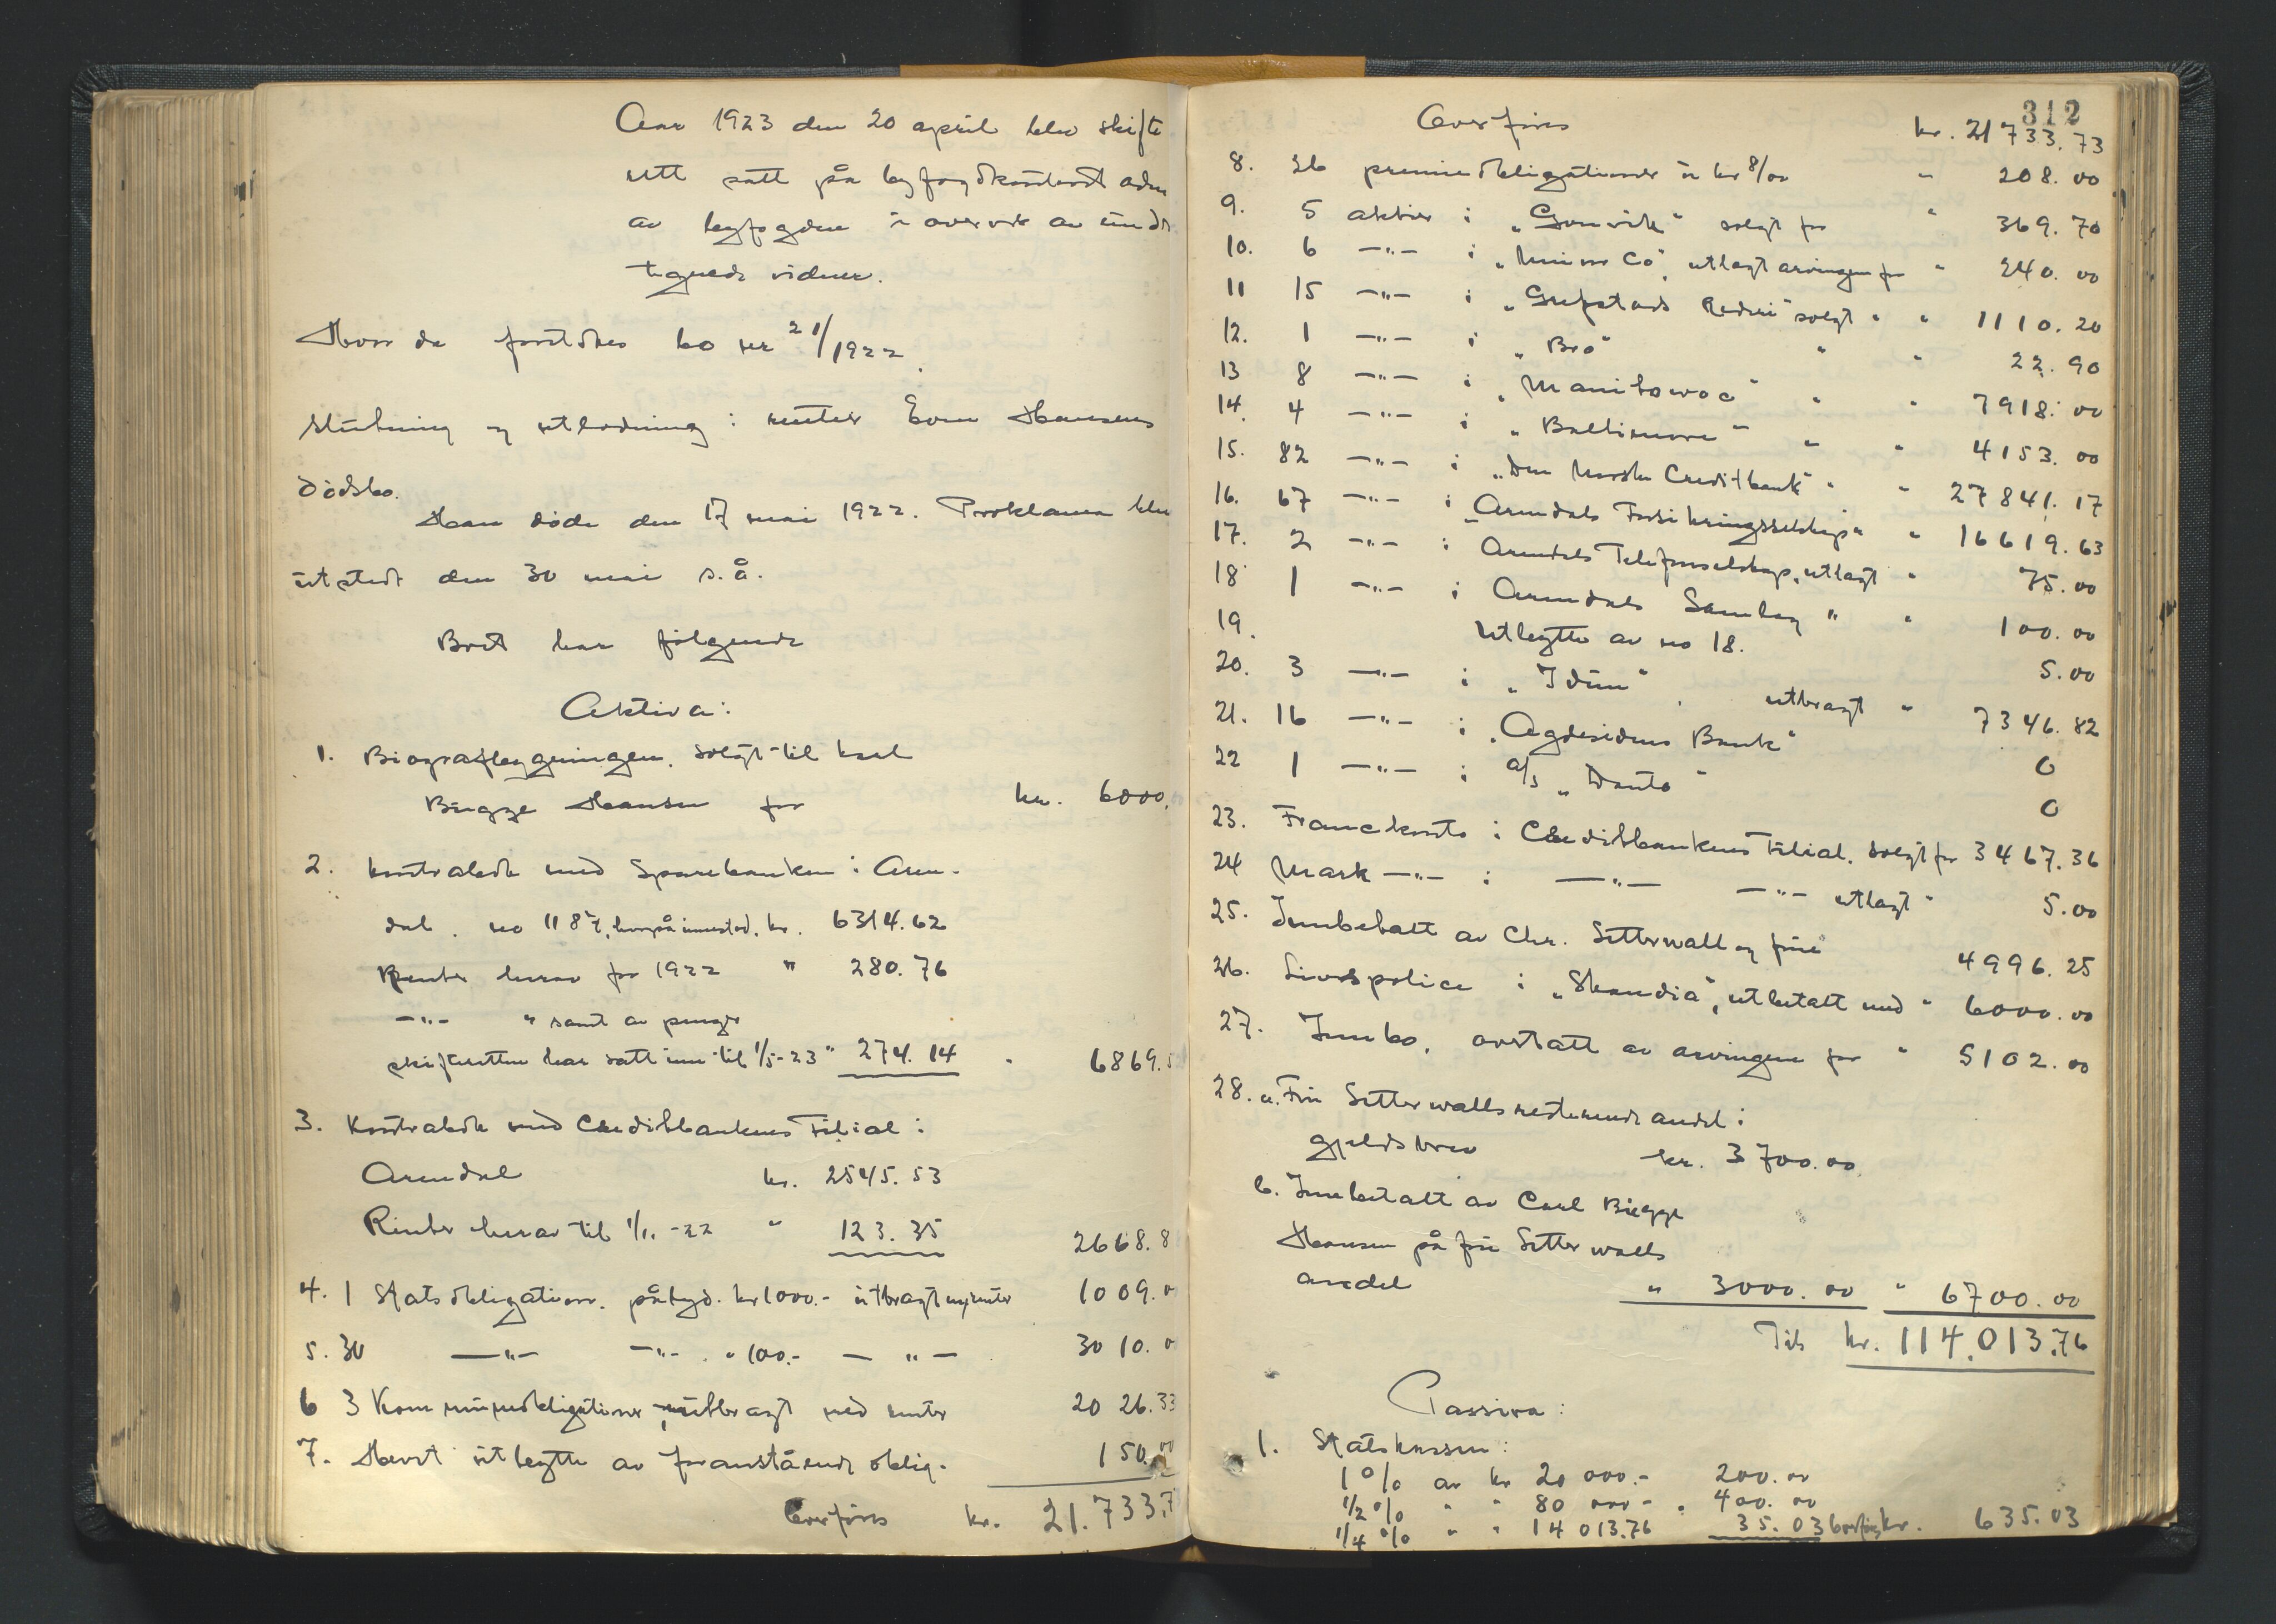 Aar 1923 den 20 april blev skifte
rett satt på byfogdkontoret adm
av byfogden i overvær av undr
tegnede vidner.
Hvor da foretokes bo nr 21/1922.
Slutning og utlodning i rentier Even Hansens
dödsbo.
Han döde den 17 mai 1922. Proklama blev
utstedt den 30 mai s.å.
Boet har fölgende
Aktiva:
1. Biografbygningen, solgt til Karl
Bugge Hansen for kr. 6000.
2. Kontrabok med Sparebanken i Aren-
dal. no 1187, hvorpå innestod, kr. 6314.62
Renter herav for 1922 " 280.76
-"- " samt av penger
skifteretten har satt inn til 1/5-23 " 274.14 " 6869.5
3. Kontrabok med Creditbankens Filial i
Arendal kr. 2545.53
Renter herav til 1/1.-22 " 123.35 2668.8
4. 1 Statsobligation. pålyd. kr 1000.- utbragt m/renter 1009.0
5. 30 -"- -"- . " 100.- - " - 3010.0
6 3 Kommuneobligationer, utbragt med renter 2026.33
7. Hevet utbytte av foranstående oblig. 150.00
Overföres kr. 21.733.7
312
Overföres kr. 21733.73
8. 26 premieobligationer à kr 8/00 " 208.00
9. 5 aktier i "Gonvik" solgt for " 369.70
10. 6 -"- i "Union Co", utlagt arvingene for " 240.00
11 15 -"- i "Grefstads Rederi" solgt " " 1110.20
12. 1 -"- i "Bro" " " 22.90
13 8 -"- i "Manitowoc" " " 7918.00
14. 4 -"- i "Baltimore" " " 4153.00
15. 82 -"- i "Den Norske Creditbank" " " 27841.17
16. 67 -"- i "Arendals Forsikringsselskap" " 16619.63
17. 2 -"- i Arendals Telefonselskap, utlagt " 75.00
18 1 -"- i Arendals Samlag " " 100.00
19. Utbytte av no 18. 5.00
20. 3 -"- i "Idun", utbragt " 7346.82
21. 16 -"- i "Agdesidens Bank" 0
22 1 -"- i a/s "Danto" 0
23. Franckonto i Creditbankens Filial. solgt for 3467.36
24 Mark -"- i -"- -"- utlagt " 5.00
25. Innbetalt av Chr. Setterwall og frue 4996.25
26. Livspolice i "Skandia", utbetalt med " 6000.00
27. Innbo, overtatt av arvingene for " 5102.00
28. a. Fru Setterwalls resterende andel i
gjeldsbrev kr. 3700.00
b. Innbetalt av Carl Bugge
Hansen på fru Setterwalls
andel " 3000.00 " 6700.00
Tils kr. 114.013.76
Passiva:
1. Statskassen:
1% av kr 20 000.- 200.00
1/2% " " 80 000 - " 400.00
1/4% " " 14 013.76 35.03 overföres kr. 635.03